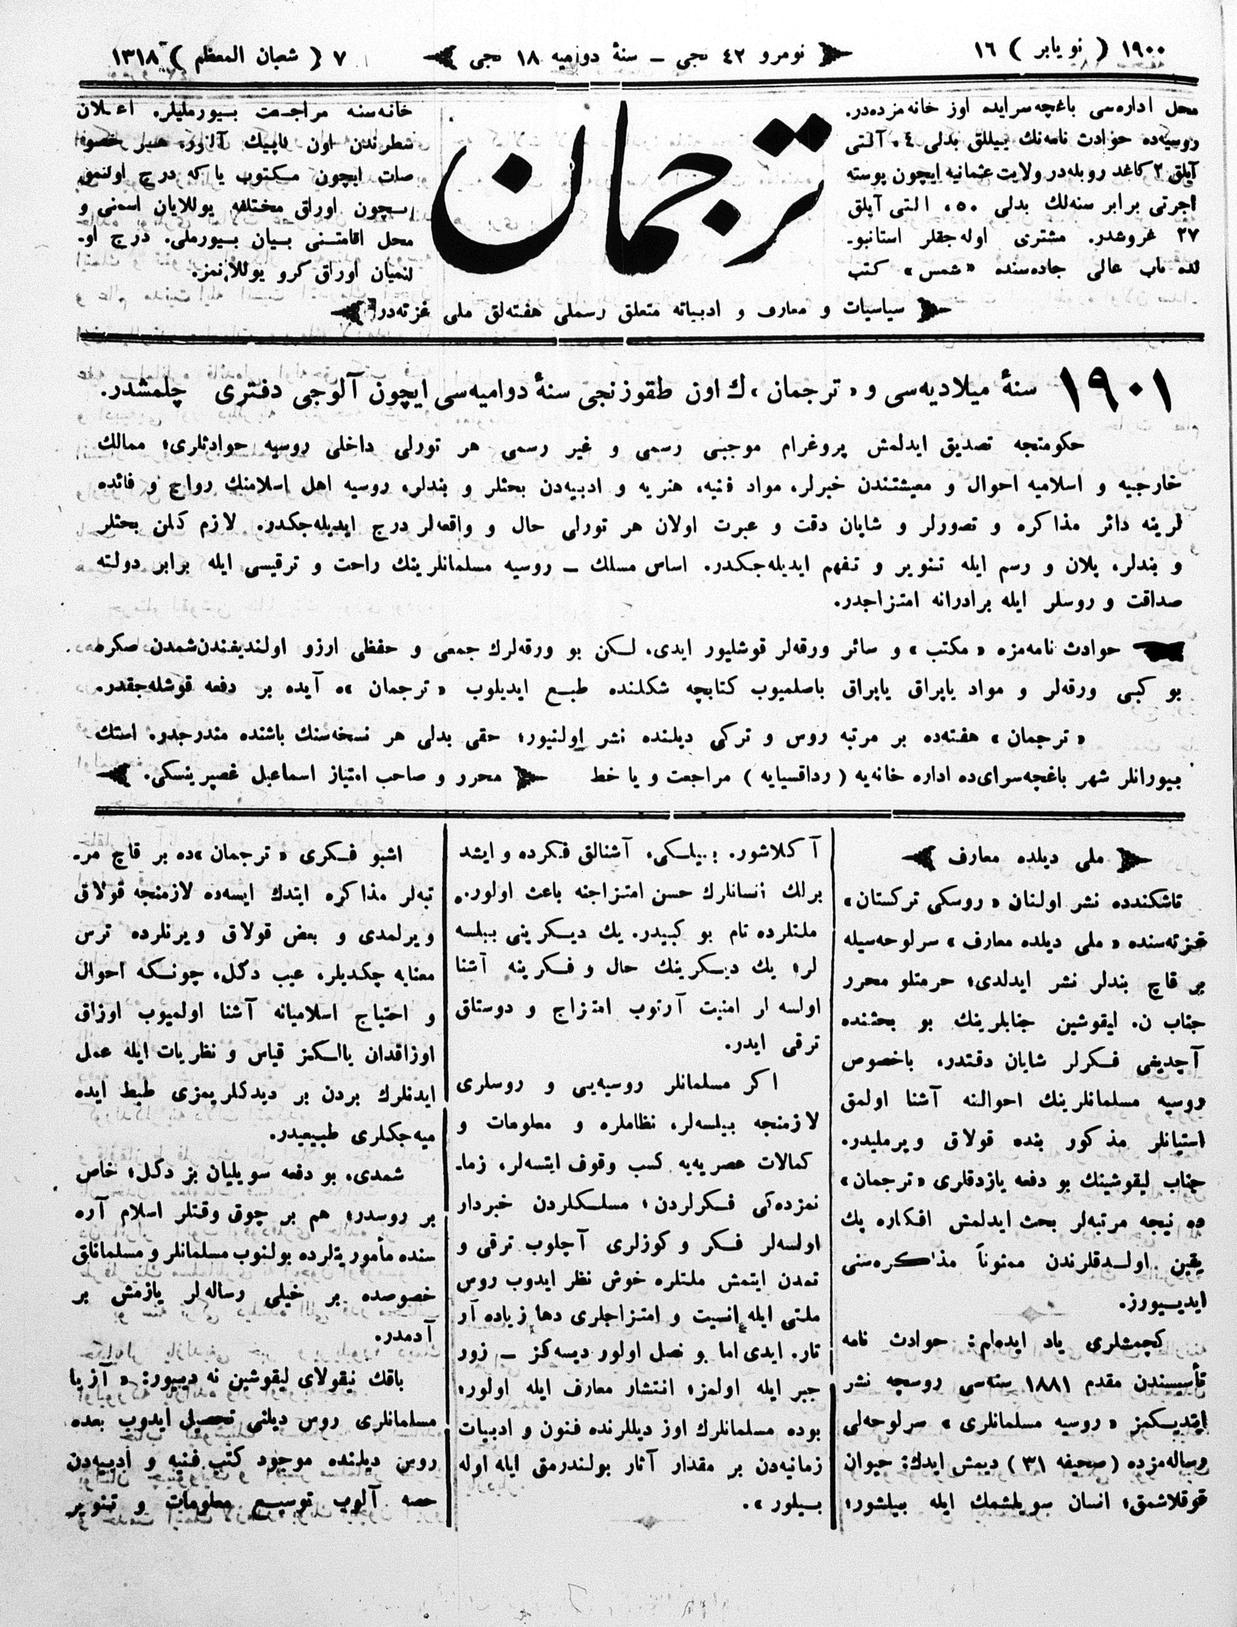 ١٩٠٠ ( نويابر ) ١٦
نومرو ٤٢ نجى ــ سنۀ دواميه ١٨ نجى
٧ ( شعبان المعظم ) ١٣١٨
محل اداره‌سى باغچه‌سرايده اوز خانه‌مزده‌در.
روسيه‌ده حوادث نامه‌نك ييللق بدلى ٤، آلتى
آيلق ٢ كاغد روبله‌در ولايت عثمانيه ايچون پوسته
اجرتى برابر سنه‌لك بدلى ٥٠، التى آيلق
٢٧ غروشدر. مشترى اوله‌جقلر استانبو۔
لده باب عالى جاده‌سنده «شمس» كتب
ترجمان
خانه‌سنه مراجعت بيورمليلر. اعلان
سطرندن اون قاپيك آلنور. هبر خصو۔
صات ايچون مكتوب يا كه درج اولنمق
ايچون اوراق مختلفه يوللايان اسمنى و
محل اقامتنى بيان بيورملى. درج او۔
لنميان اوراق كرو يوللانمز.
سياسيات و معارف و ادبياته متعلق رسملى هفته‌لق ملى غزته‌در
١٩٠١ سنۀ ميلاديه‌سى و «ترجمان»ك اون طقوزنجى سنۀ دواميه‌سى ايچون آلوجى دفترى چلمشدر.
حكومتجه تصديق ايدلمش پروغرام موجبى رسمى و غير رسمى هر تورلى داخلى روسيه حوادثلرى؛ ممالك
خارجيه و اسلاميه احوال و معيشتندن خبرلر، مواد فنيه، هنريه و ادبيه‌دن بحثلر و بندلر، روسيه اهل اسلامنك رواج و فائده
لرينه دائر مذاكره و تصورلر و شايان دقت و عبرت اولان هر تورلى حال و واقعه‌لر درج ايديله‌جكدر. لازم كلن بحثلر
و بندلر، پلان و رسم ايله تنوير و تفهم ايديله‌جكدر. اساس مسلك ــ روسيه مسلمانلرينك راحت و ترقيسى ايله برابر دولته
صداقت و روسلر ايله برادرانه امتزاجدر.
حوادث نامه‌مزه «مكتب» و سائر ورقه‌لر قوشليور ايدى. لكن بو ورقه‌لرك جمعى و حفظى ارزو اولنديغندن شمدن صكره
بو كبى ورقه‌لر و مواد ياپراق ياپراق باصلميوب كتابچه شكلنده طبع ايديلوب «ترجمان»ه آيده بر دفعه قوشله‌جقدر.
«ترجمان» هفته‌ده بر مرتبه روس و تركى ديلنده نشر اولنيور؛ حقى بدلى هر نسخه‌سنك باشنده مندرجدر. استك
بيورانلر شهر باغچه‌سراى‌ده اداره خانه‌يه (رداقسيايه) مراجعت و يا خط
محرر و صاحب امتياز اسماعيل غصپرينسكى.
ملى ديلده معارف
تاشكندده نشر اولنان «روسكى تركستان»
غزته‌سنده «ملى ديلده معارف» سرلوحه‌سيله
بر قاچ بندلر نشر ايدلدى؛ حرمتلو محرر
جناب ن. ليقوشين جنابلرينك بو بحثنده
آچديغى فكرلر شايان دقتدر. باخصوص
روسيه مسلمانلرينك احوالنه آشنا اولمق
استيانلر مذكور بنده قولاق ويرمليدر.
جناب ليقوشينك بو دفعه يازدقلرى «ترجمان»
ده نيجه مرتبه‌لر بحث ايدلمش افكاره پك
يقين اولدقلرندن ممنوناً مذاكره‌سنى
ايديورز.
كچمشلرى ياد ايده‌لم: حوادث نامه
تأسيسندن مقدم ١٨٨١ سنه‌سى روسچه نشر
ايتديكمز «روسيه مسلمانلرى» سرلوحه‌لى
رساله‌مزده (صحيفه ٣١) ديمش ايدك: حيوان
قوقلاشمق؛ انسان سويلشمك ايله بيلشور؛
آكلاشور. بيلكى، آشنالق فكرده و ايشد
برلك انسانلرك حسن امتزاجنه باعث اولور.
ملتلرده تام بو كبيدر. يك ديكرينى بيلسه
لر؛ يك ديكرينك حال و فكرينه آشنا
اولسه لر امنيت آرتوب امتزاج و دوستلق
ترقى ايدر.
اكر مسلمانلر روسيه‌يى و روسلرى
لازمنجه بيلسه‌لر، نظاملره و معلومات و
كمالات عصريه‌يه كسب وقوف ايتسه‌لر، زما۔
نمزده‌كى فكرلردن؛ مسلكلردن خبردار
اولسه‌لر فكر و كوزلرى آچلوب ترقى و
تمدن ايتمش ملتلره خوش نظر ايدوب روس
ملتى ايله انسيت و امتزاجلرى دها زياده آر
تار. ايدى اما بو نصل اولور ديسه‌كز ــ زور
جبر ايله اولمز؛ انتشار معارف ايله اولور؛
بوده مسلمانلرك اوز ديللرنده فنون و ادبيات
زمانيه‌دن بر مقدار آثار بولندرمق ايله اوله
بيلور».
اشبو فكرى «ترجمان»ده بر قاچ مر۔
تبه‌لر مذاكره ايتدك ايسه‌ده لازمنجه قولاق
ويرلمدى و بعض قولاق ويرنلرده ترس
معنايه چكديلر. عيب دكل، چونكه احوال
و احتياج اسلاميانه آشنا اولميوب اوزاق
اوزاقدان يالكز قياس و نظريات ايله عمل
ايدنلرك بردن بر ديدكلريمزى طبط ايده
ميه‌جكلرى طبيعيدر.
شمدى، بو دفعه سويليان بز دكل؛ خاص
بر روسدر؛ هم بر چوق وقتلر اسلام آره
سنده مأموريتلرده بولنوب مسلمانلر و مسلمانلق
خصوصده بر خيلى رساله‌لر يازمش بر
آدمدر.
باقك نيقولاى ليقوشين نه دييور: «آزيا
مسلمانلرى روس ديلنى تحصيل ايدوب بعده
روس ديلنده موجود كتب فنيه و ادبيه‌دن
حصه آلوب توسيع معلومات و تنوير